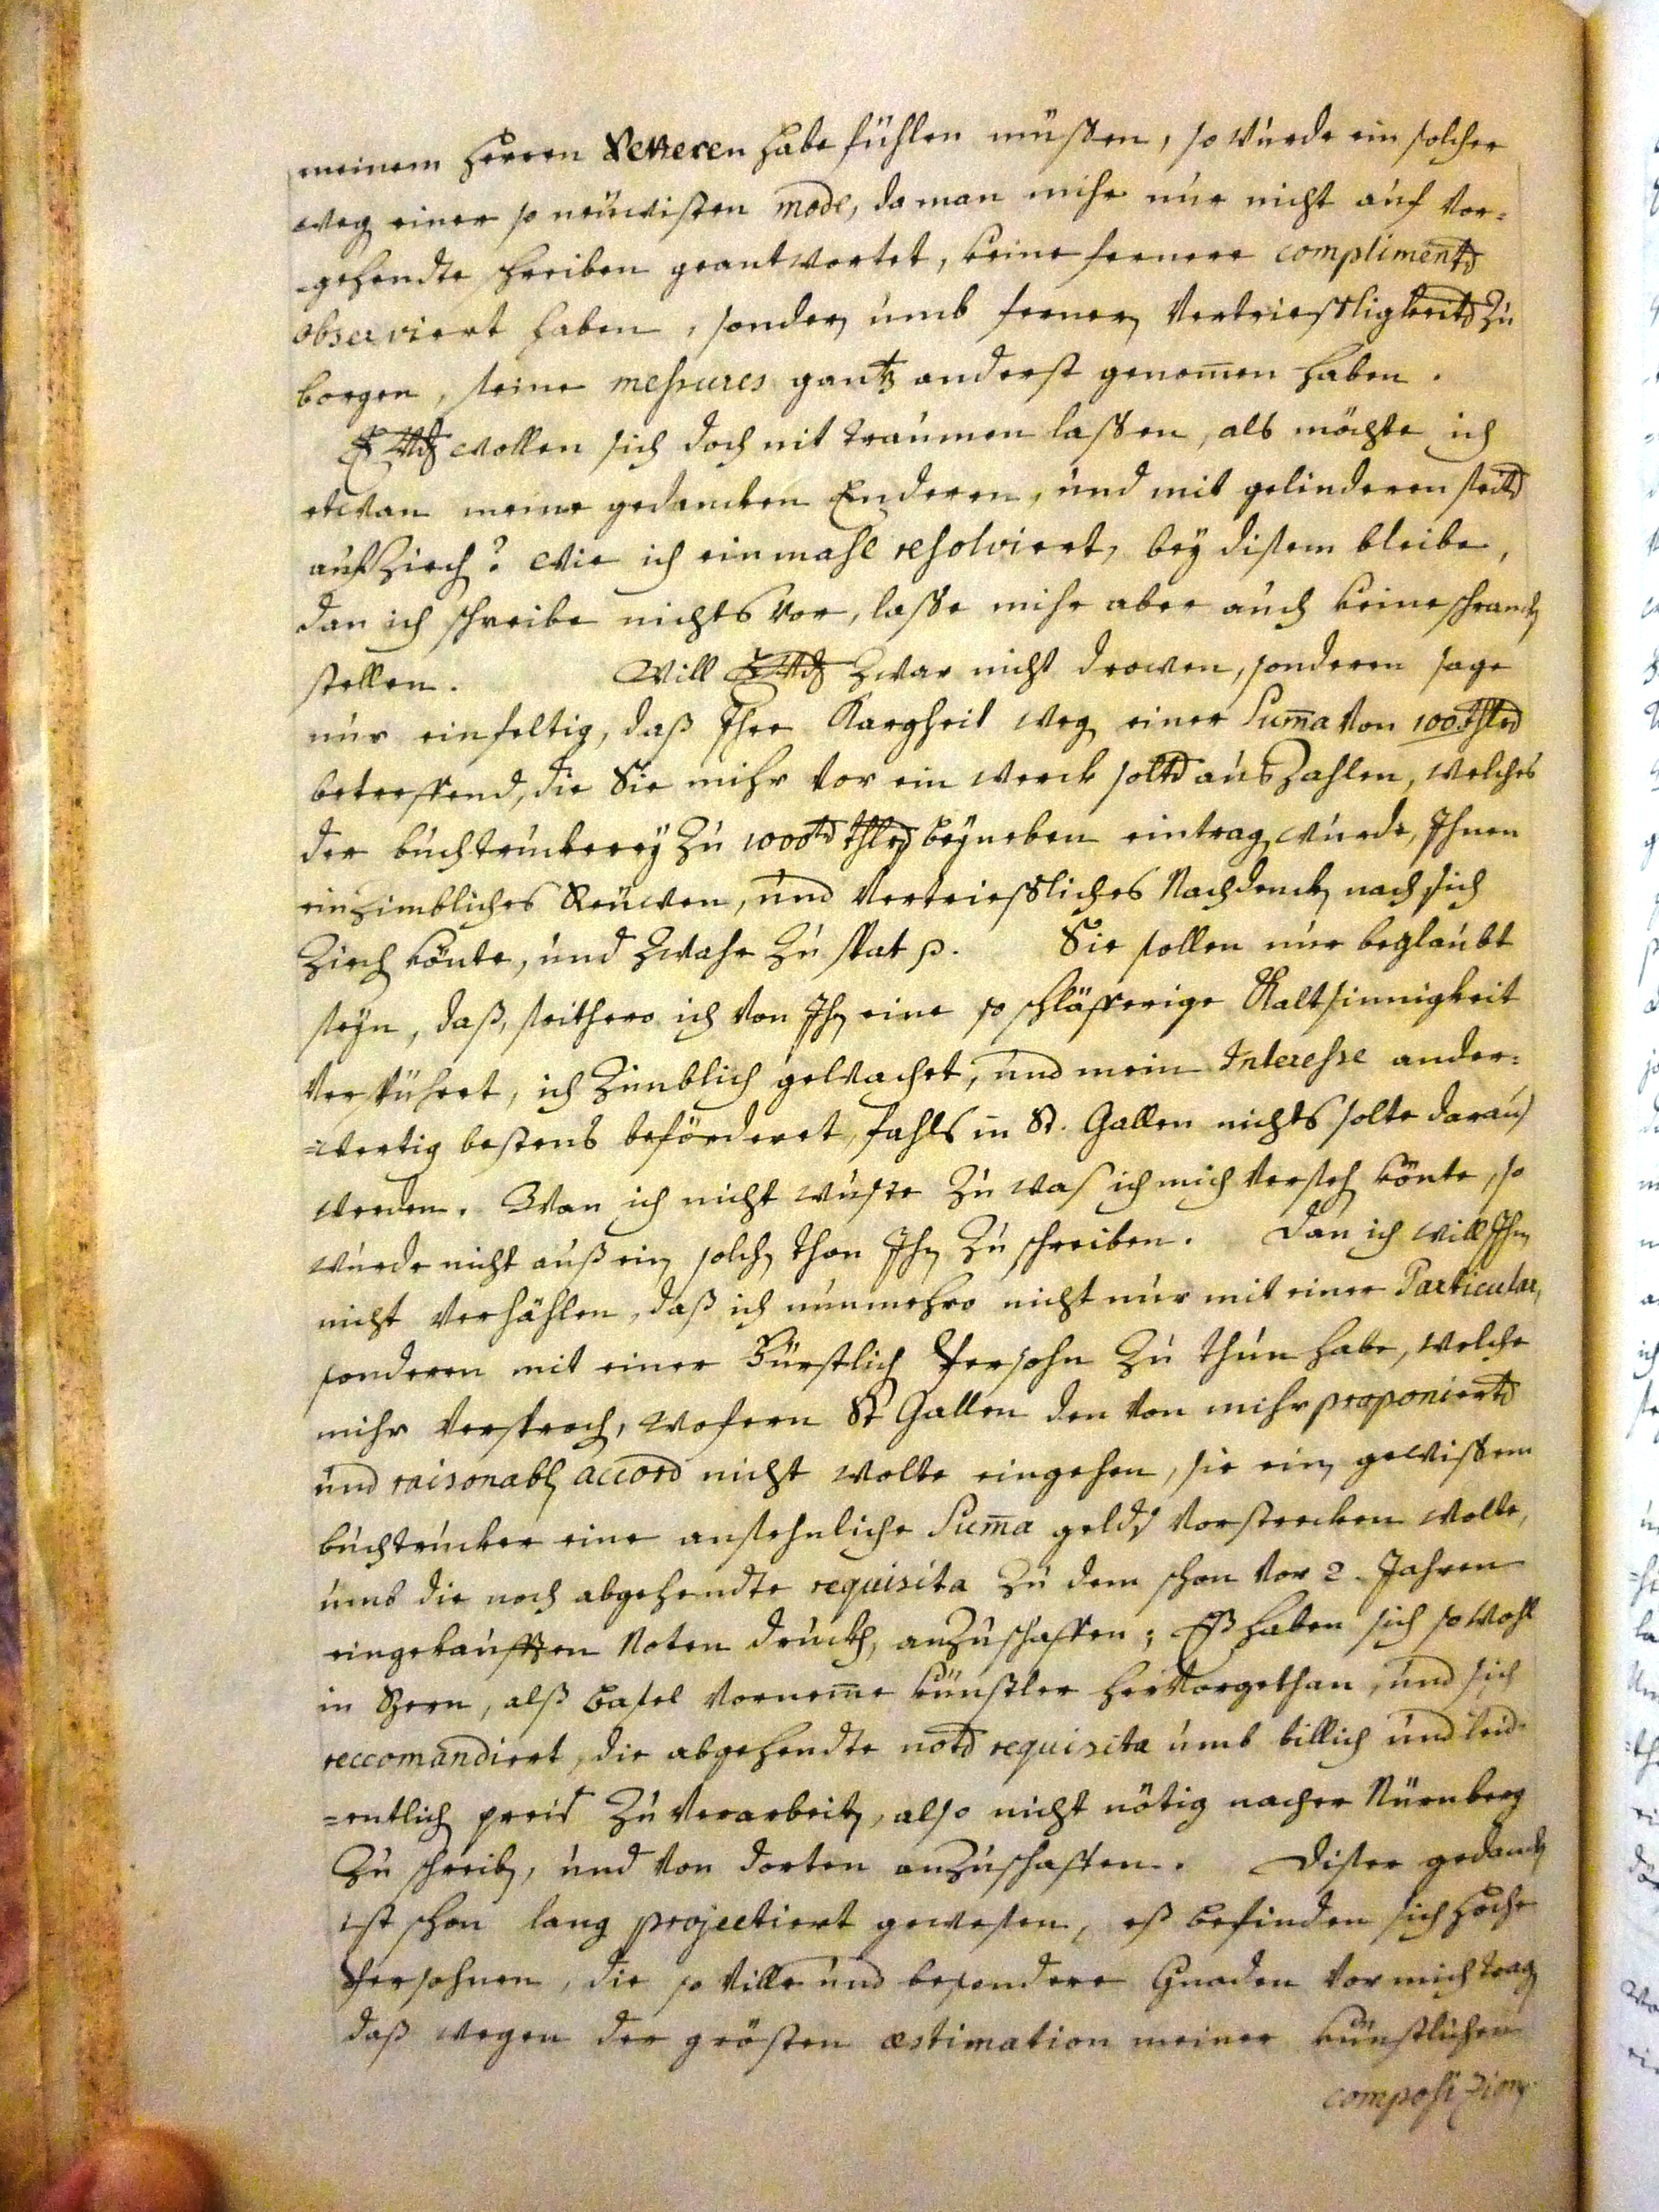 meinem Herren Vetteren habe fühlen müßen, so wurde ein solcher
weg einer so neüwisten mode, da man mihr nur nicht auf vor=
gehendte schreiben geantwortet, keine fernere complimentē
observiert haben, sonderē umb fernerē vertrießligkeitē zu
borgen, seine meßures gantz anderst genom̄en haben.
wollen sich doch nit traumen laßen, als möchte ich
etwan meine gedancken Enderen, und mit gelinderen seitē
aufziech? wie ich ein mahl resolviert, bey disem bleibe,
dan ich schreibe nichts vor, laße mihr aber auch keine schranckē
stellen. Will zwar nicht drowen, sonderen sage
nur einfeltig, daß Ihre Kargheit weg einer Sum̄a von 100 thlrē
betreffend, die Sie mihr vor ein werck soltē auszahlen, welches
der buchtruckerey zu 1000tē thlrē beyneben eintragē wurde, Ihnen
ein zimbliches Reüwen, und vertrießliches Nachdenckē nach sich
ziechē könte, und zwahr zu spat p. Sie sollen nur beglaubt
seyn, daß, seithero ich von Ihnē eine so schläfferige Kaltsinnigkeit
verspührt, ich zimblich gewachet, und mein Interesse ander=
=wertig bestens beförderet, fahls in St. Gallen nichts solte daraus
werden. Wan ich nicht wuste zu was ich mich versechē könte, so
wurde nicht auß einē solchē thon Ihnē zu schreiben. Dan ich will Ihnē
nicht verhählen, daß ich nunmehro nicht nur mit einer Particular,
sonderen mit einer Fürstlichē Persohn zu thun habe, welche
mihr versprochē, wofern St Gallen den von mihr proponiertē
und raisonablē accord nicht wolte eingehen, sie einē gewißem
buchtrucker eine ansehnliche Sum̄a gelds vorstrecken wolte,
umb die noch abgehendte requisita zu dem schon vor 2. Jahren
eingekaufften Noten druckh, anzuschaffen; Eß haben sich so wohl
in Bern, alß Basel vornem̄e künstler hervorgethan, und sich
reccomandiert, die abgehendte notē requisita umb billich und leid=
=entlichē preis zu verarbeitē, also nicht nötig nacher Nürnberg
zu schreibē, und von dorten anzuschaffen. Diser gedanckē
ist schon lang projectiert gewesen, eß befinden sich hoche
Persohnen, die so ville und besondere Gnaden vor mich tragē
daß wegen der grösten æstimation meiner künstlichen
composizionē